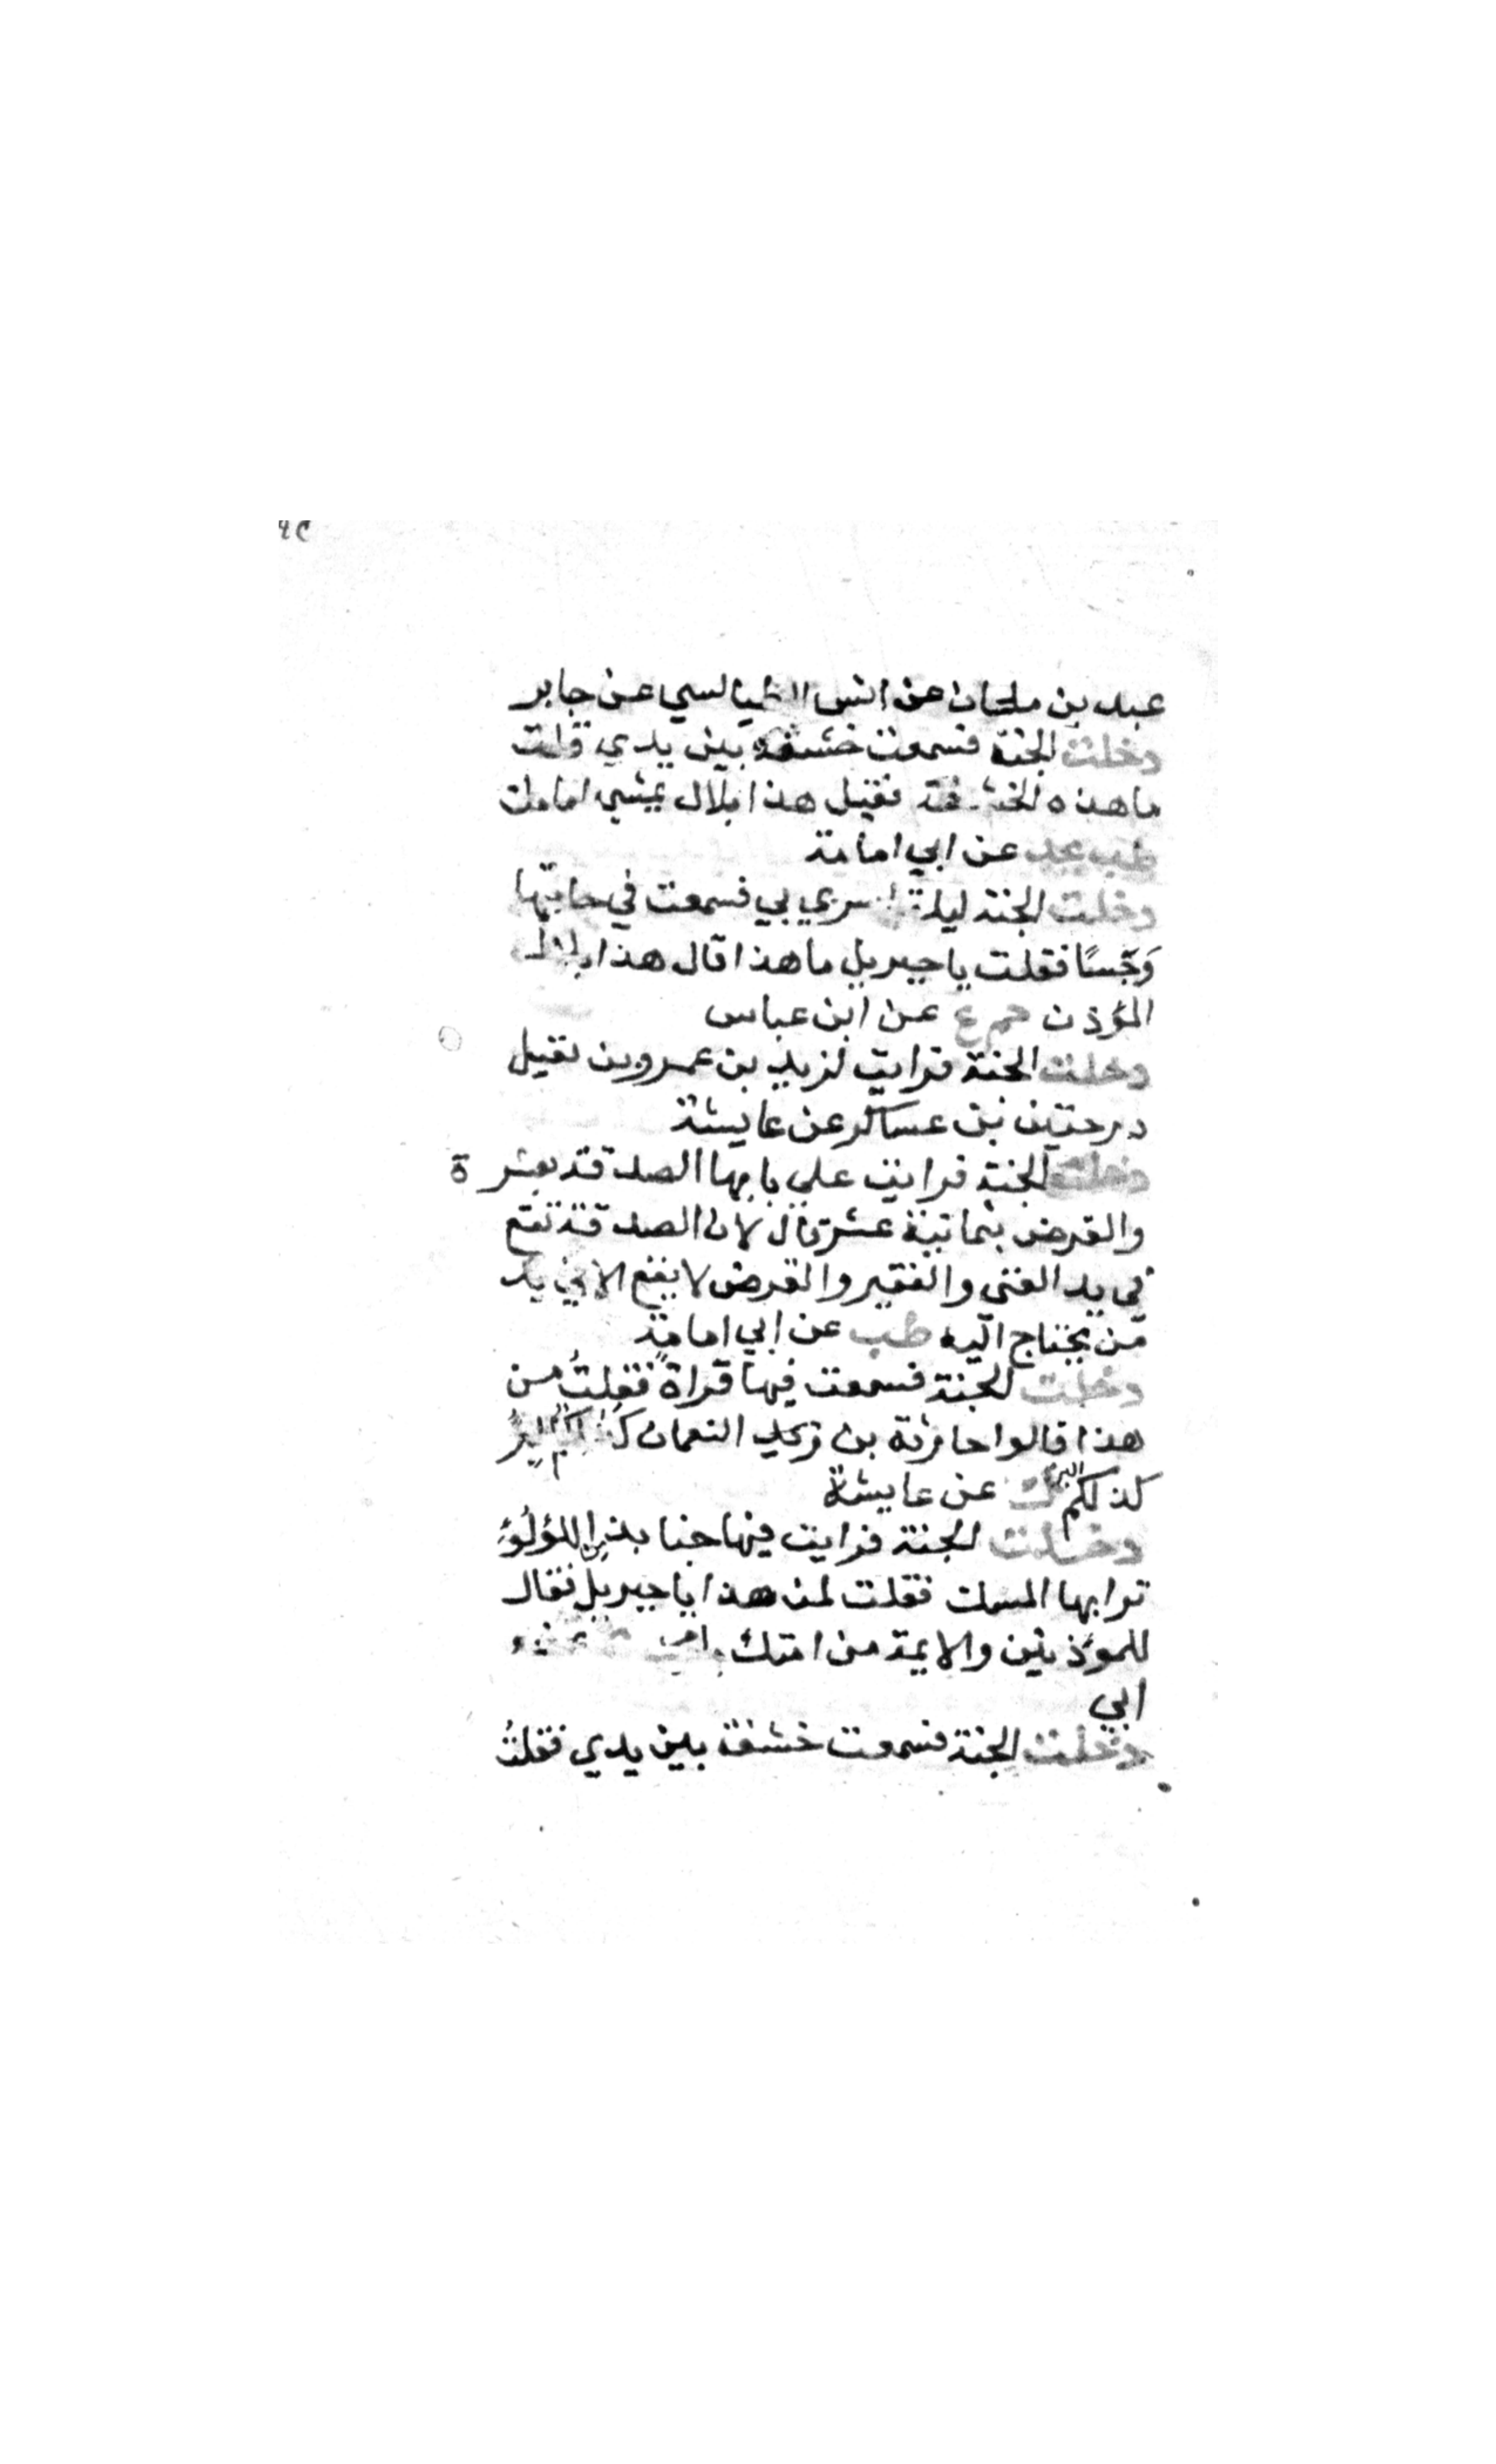 عبد بن ملحان عن انس الطيالسي عن جابر
دخلت الجنة فسمعت خشفة بين يدي قلت
ما هذه الخشفة فقيل هذا بلال يمشي امامك
طب عد عن ابي امامة
دخلت الجنة ليلة اسري بي فسمعت في جانبها
وَجْسًا فقلت يا جبريل ما هذا قال هذا بلال
المؤذن حم ع عن ابن عباس
دخلت الجنة فرايت لزيد بن عمرو بن نفيل
درجتين بن عساكر عن عايشة
دخلت الجنة فرايت على بابها الصدقة بعشرة
والقرض بثمانية عشر قال لان الصدقة تقع
في يد الغني والفقير والقرض لا يقع الا في يد
من يحتاج اليه طب عن ابي امامة
دخلت الجنة فسمعت فيها قراةً فقلتُ من
هذا قالوا حارثة بن النعمان كذلكم البرُّ
كذلكم البر ك عن عايشة
دخلت الجنة فرايت فيها جنابذ اللؤلؤ
ترابها المسك فقلت لمن هذا يا جبريل فقال
للموذنين والايمة من امتك
ابي
دخلت الجنة فسمعت خشفة بين يدي فقلتُ